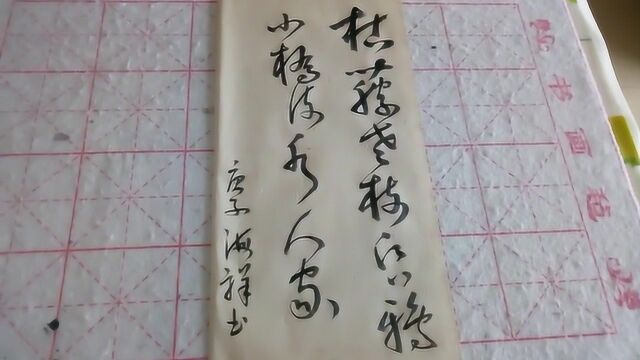 枯藤老树昏鸦
小桥流水人家
庚子海祥书
书画毡